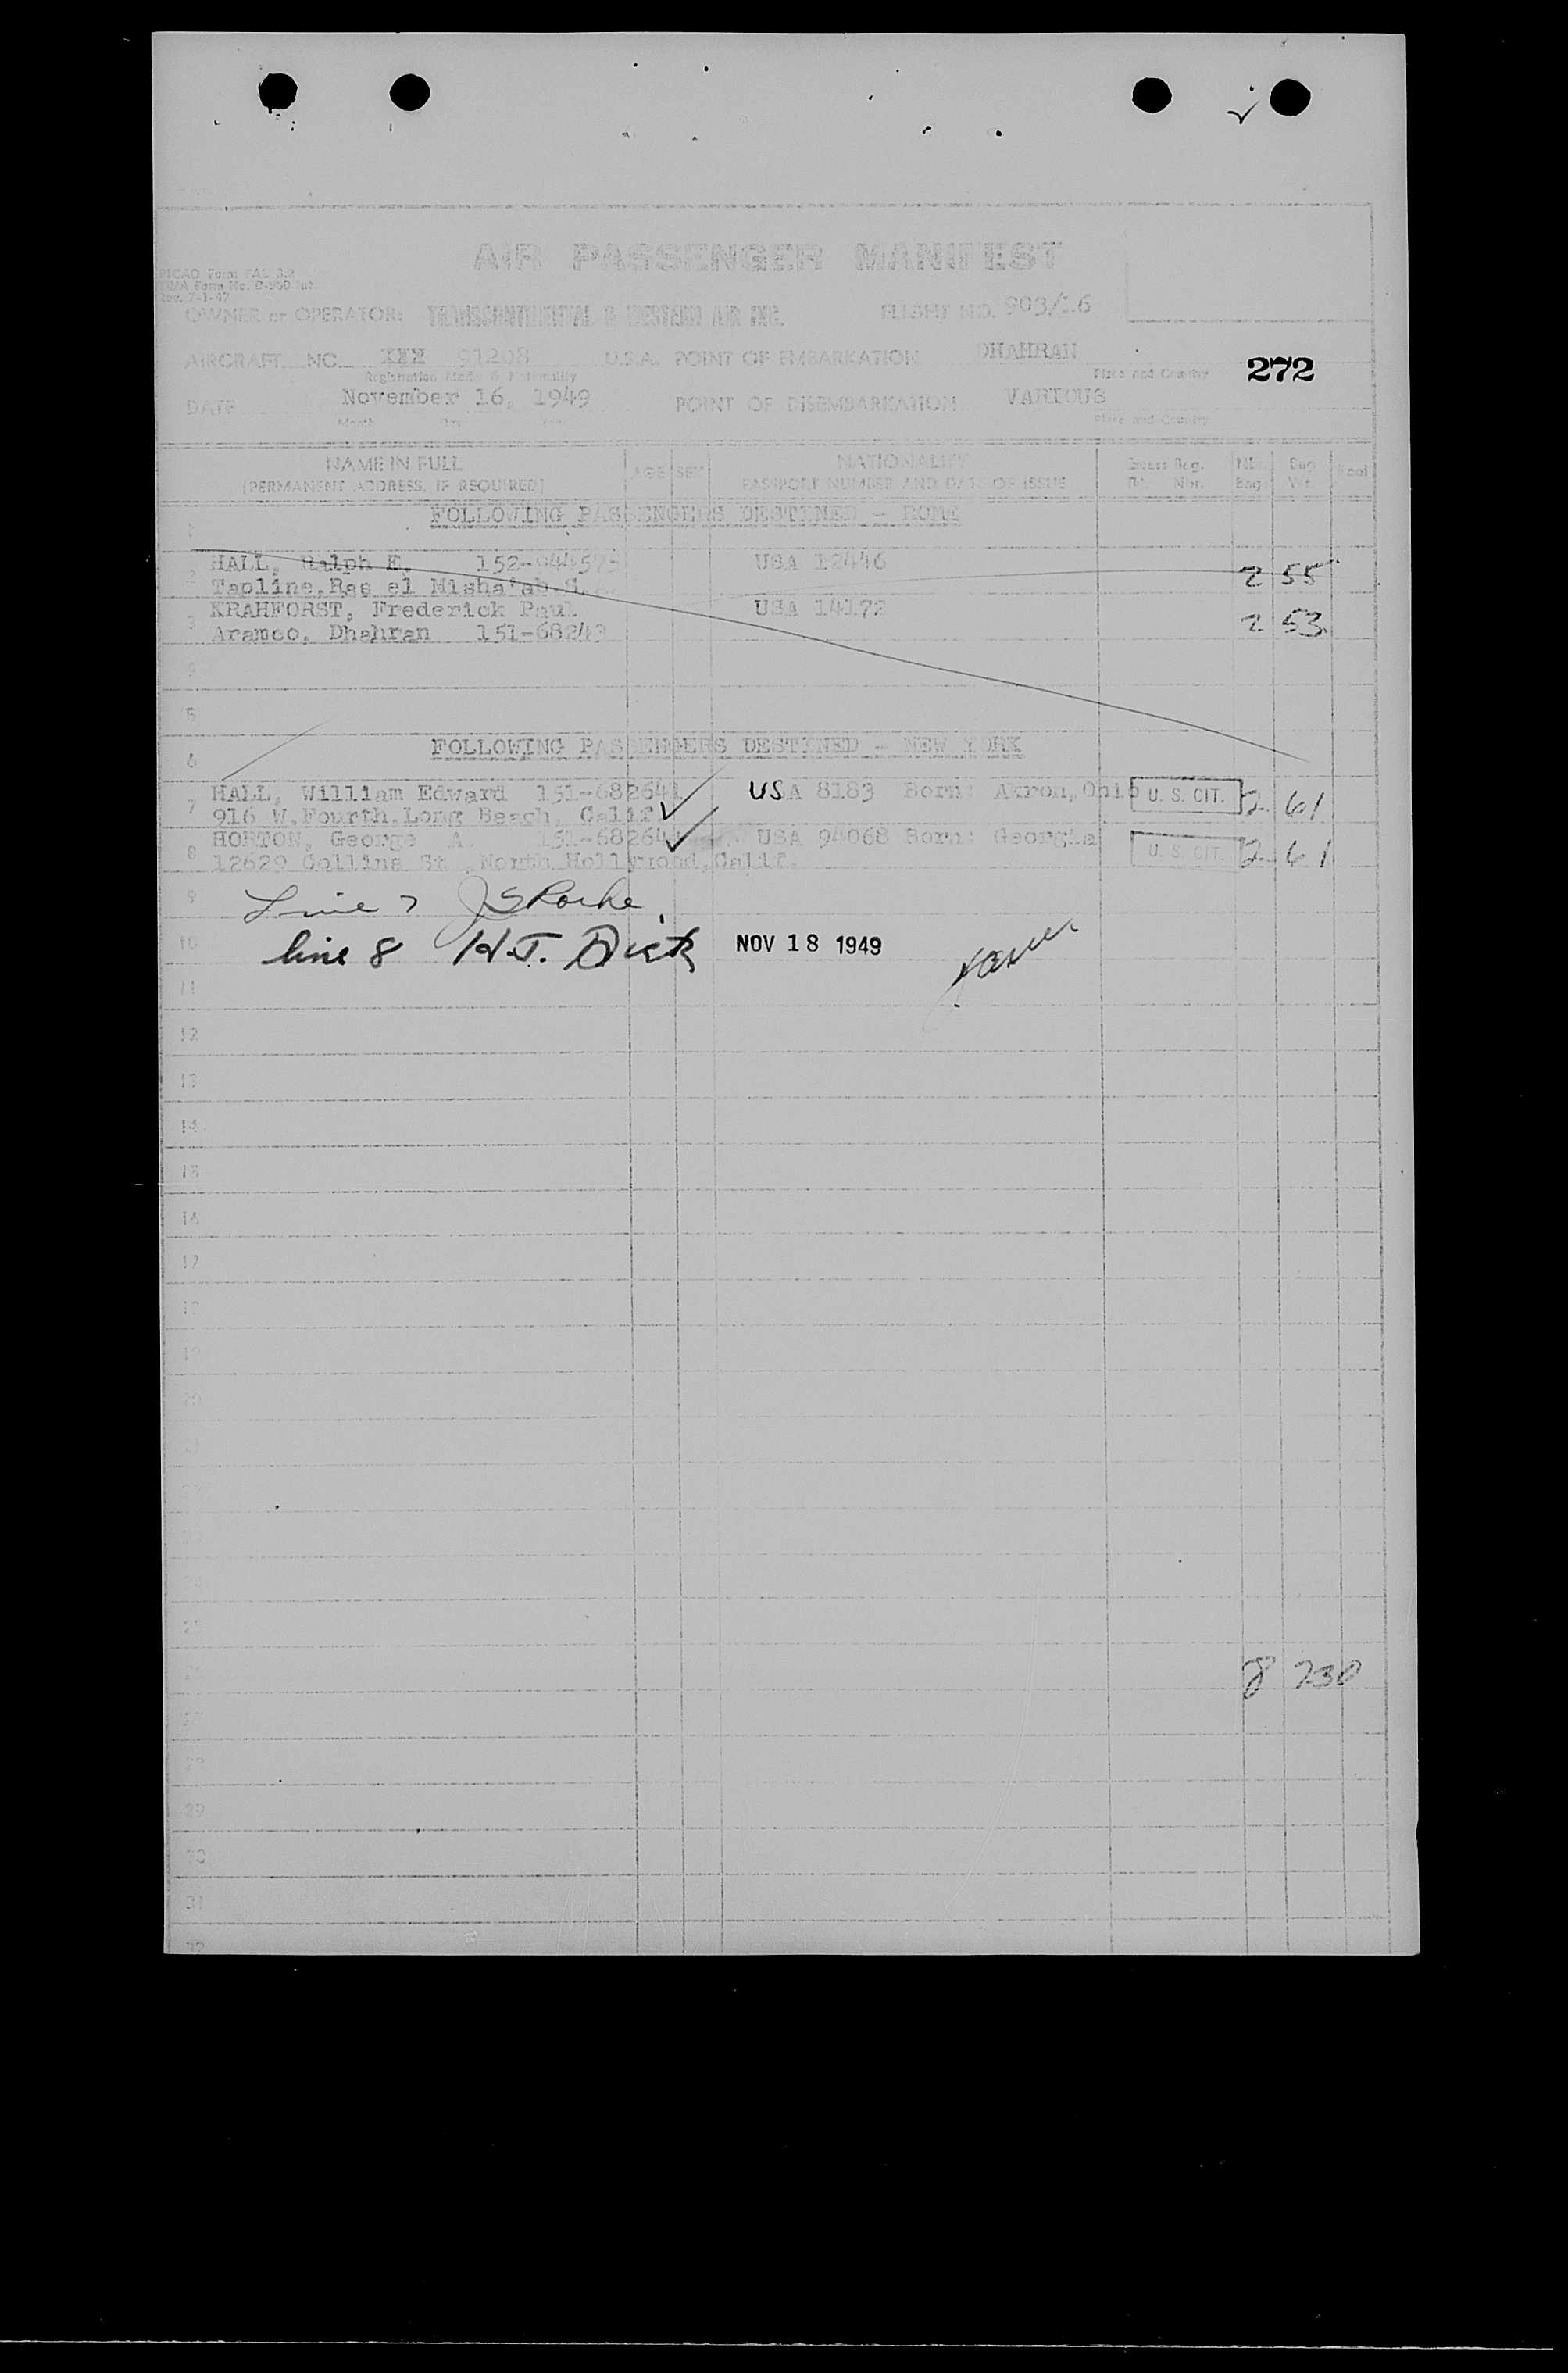 AIR PASSENGER MANIFEST
OWNER or OPERATOR: TRANSCONTINENTAL & WESTERN AIR INC. FLIGHT NO. 903/16
AIRCRAFT NC XXX 91208 U.S.A. POINT OF EMBARKATION DHAHRAN
Registration Marks & Nationality Place and Country
272
DATE November 16, 1949 POINT OF DISEMBARKATION VARIOUS
Month Day Year Place and Country
NAME IN FULL AGE SEX NATIONALITY Excess Bag. Nbr. Bag
(PERMANENT ADDRESS, IF REQUIRED) PASSPORT NUMBER AND DATE OF ISSUE Nbr. Bag. Wt.
1 FOLLOWING PASSENGERS DESTINED - ROME
HALL, Ralph E. USA 12446
2 Tapline, Ras el Misha'ab S. 2 55
KRAHFORST, Frederick Paul USA 14172
3 Aramco, Dhahran 151-68249 2 53
4
5
FOLLOWING PASSENGERS DESTINED - NEW YORK
6
HALL, William Edward 151-682641 USA 8183 Born: Akron, Ohio U. S. CIT.
7 916 W. Fourth. Long Beach, Calif. 2 61
HORTON, George A. 151-68264 USA 94068 Born: Georgia U. S. CIT.
8 12629 Collins St., North Hollywood, Calif. 2 61
9 Line 7 JSRoche
10 line 8 H.J. Dick NOV 18 1949
11
12
13
14
15
16
17
18
19
20
25
8 230
29
30
31